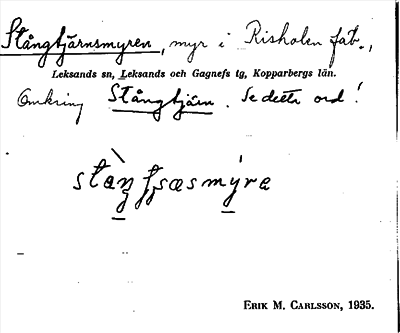 Stångtjärnsmyren, myr i Risholen fab.,
Leksands sn, Leksands och Gagnefs tg, Kopparbergs län.
Omkring Stångtjärn. Se detta ord!
ERIK M. CARLSSON, 1935.